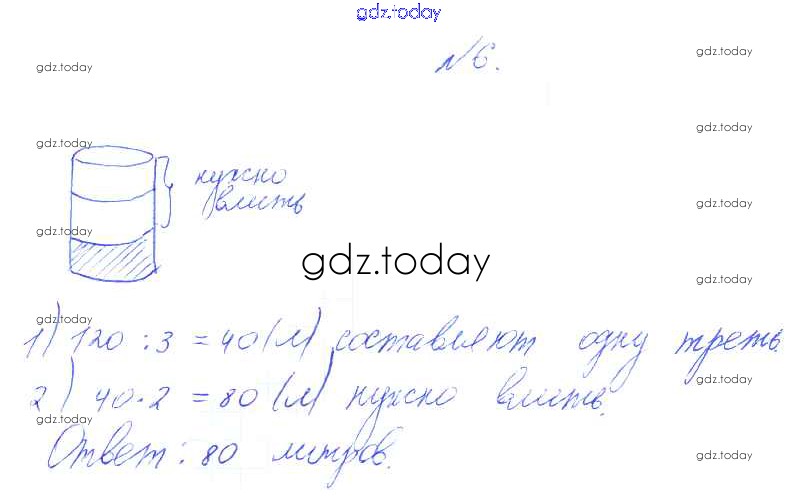 gdz.today
№6.
gdz.today
gdz.today
gdz.today
gdz.today
нужно
влить
gdz.today
gdz.today
gdz.today
gdz.today
gdz.today
1) 120 : 3 = 40 (л) составляют одну треть.
gdz.today
2) 40 · 2 = 80 (л) нужно влить.
gdz.today
Ответ: 80 литров.
gdz.today